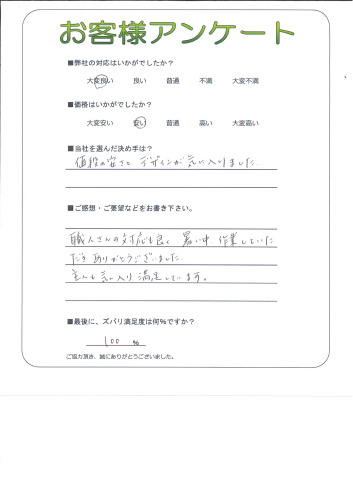 お客様アンケート
■弊社の対応はいかがでしたか？
大変良い 良い 普通 不満 大変不満
■価格はいかがでしたか？
大変安い 安い 普通 高い 大変高い
■当社を選んだ決め手は？
値段の安さと デザインが気に入りました.
■ご感想・ご要望などをお書き下さい。
職人さんの対応も良く 暑い中 作業していた
だき ありがとうございました.
主人も気に入り満足しています。
■最後に、ズバリ満足度は何%ですか？
100 %
ご協力頂き、誠にありがとうございました。